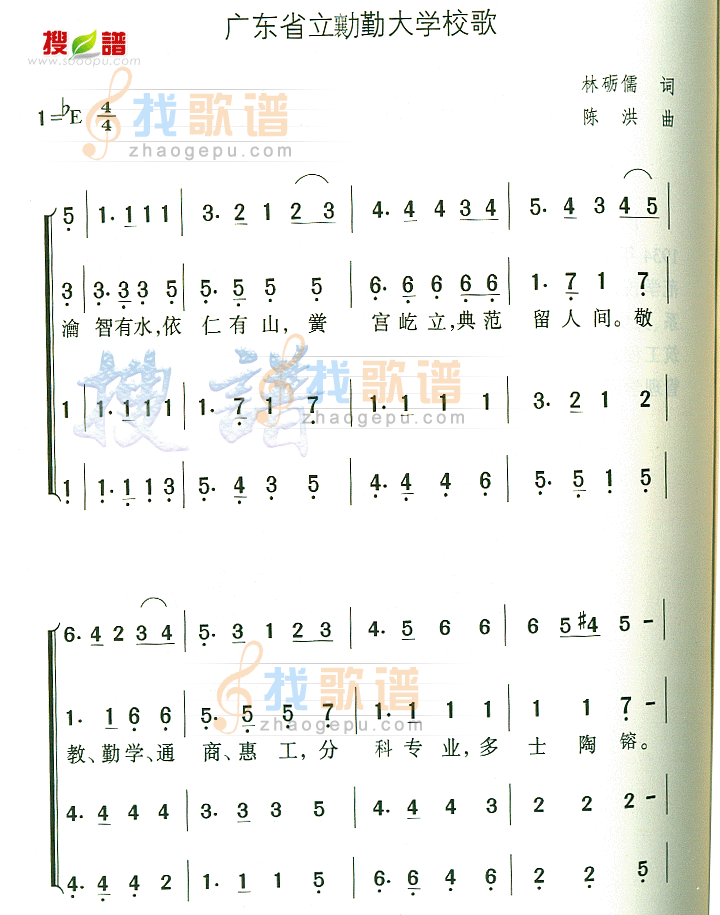 广东省立勷勤大学校歌
搜 谱
www.sooopu.com
林砺儒 词
1=♭E 4/4
陈 洪 曲
找歌谱
zhaogepu.com
5 | 1· 1 1 1 | 3· 2 1 2 3 | 4· 4 4 3 4 | 5· 4 3 4 5 |
3 | 3· 3 3 5 | 5· 5 5 5 | 6· 6 6 6 6 | 1· 7 1 7 |
瀹 智有水,依 仁有山, 黉 宫屹立,典范 留人间。敬
搜谱
找歌谱
zhaogepu.com
1 | 1· 1 1 1 | 1· 7 1 7 | 1· 1 1 1 | 3· 2 1 2 |
1 | 1· 1 1 3 | 5· 4 3 5 | 4· 4 4 6 | 5· 5 1 5 |
6· 4 2 3 4 | 5· 3 1 2 3 | 4· 5 6 6 | 6 5 #4 5 – |
找歌谱
zhaogepu.com
1· 1 6 6 | 5· 5 5 7 | 1· 1 1 1 | 1 1 7 – |
教、勤学、通 商、惠工,分 科专业,多士陶镕。
4· 4 4 4 | 3· 3 3 5 | 4· 4 4 3 | 2 2 2 – |
4· 4 4 2 | 1· 1 1 5 | 6· 6 4 6 | 2 2 5 |